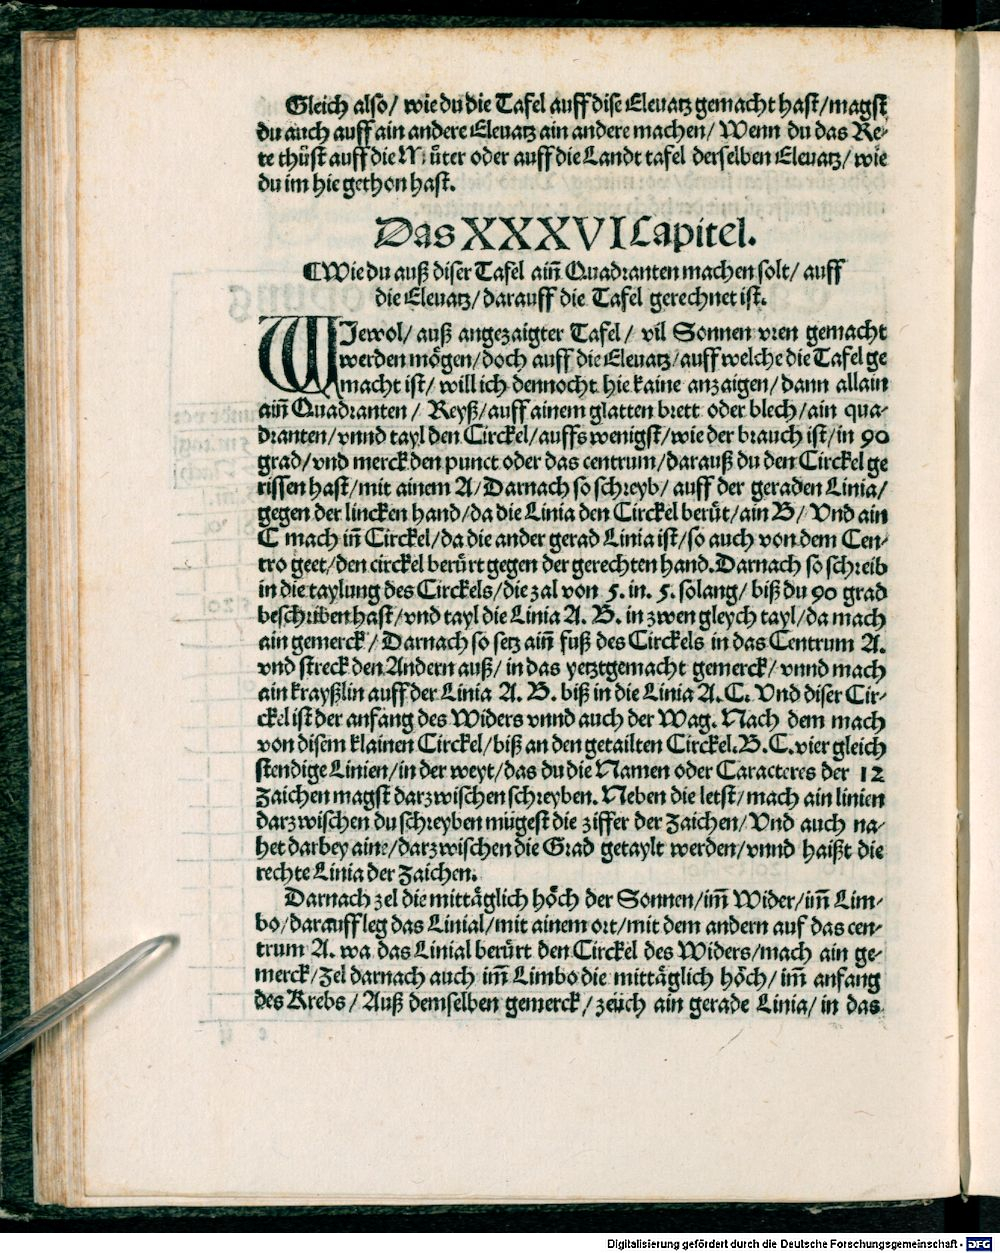 Gleich also/ wie du die Tafel auff dise Eleuatz gemacht hast/magst
du auch auff ain andere Eleuatz ain andere machen/ Wenn du das Re-
te thůst auff die Můter oder auff die Landt tafel derselben Eleuatz/ wie
du im hie gethon hast.
Das XXXVI Capitel.
¶Wie du auß diser Tafel aiñ Quadranten machen solt/ auff
die Eleuatz/ darauff die Tafel gerechnet ist.
WJewol/ auß angezaigter Tafel/ vil Sonnen vren gemacht
werden mögen/ doch auff die Eleuatz/ auff welche die Tafel ge
macht ist/ will ich dennocht hie kaine anzaigen/ dann allain
aiñ Quadranten/ Reyß/ auff ainem glatten brett oder blech/ ain qua-
dranten/ vnnd tayl den Circkel/ auffs wenigst/ wie der brauch ist/ in 90
grad/ vnd merck den punct oder das centrum/ darauß du den Circkel ge
rissen hast/ mit ainem A/ Darnach so schreyb/ auff der geraden Linia/
gegen der lincken hand/ da die Linia den Circkel berüt/ ain B/ Vnd ain
C mach iñ Circkel/ da die ander gerad Linia ist/ so auch von dem Cen-
tro geet/ den circkel berürt gegen der gerechten hand. Darnach so schreib
in die taylung des Circkels/ die zal von 5. in. 5. solang/ biß du 90 grad
beschriben hast/ vnd tayl die Linia A. B. in zwen gleych tayl/ da mach
ain gemerck/ Darnach so setz aiñ fuß des Circkels in das Centrum A.
vnd streck den Andern auß/ in das yetztgemacht gemerck/ vnnd mach
ain krayßlin auff der Linia A. B. biß in die Linia A. C. Vnd diser Cir-
ckel ist der anfang des Widers vnnd auch der Wag. Nach dem mach
von disem klainen Circkel/ biß an den getailten Circkel. B. C. vier gleich
stendige Linien/ in der weyt/ das du die Namen oder Caracteres der 12
Zaichen magst darzwischen schreyben. Neben die letst/ mach ain linien
darzwischen du schreyben mügest die ziffer der Zaichen/ Vnd auch na-
het darbey aine/ darzwischen die Grad getaylt werden/ vnnd haißt die
rechte Linia der Zaichen.
Darnach zel die mittäglich höch der Sonnen/ im̃ Wider/ im̃ Lim-
bo/ darauff leg das Linial/ mit ainem ort/ mit dem andern auf das cen-
trum A. wa das Linial berürt den Circkel des Widers/ mach ain ge-
merck/ Zel darnach auch im̃ Limbo die mittäglich höch/ im̃ anfang
des Krebs/ Auß demselben gemerck/ zeüch ain gerade Linia/ in das
Digitalisierung gefördert durch die Deutsche Forschungsgemeinschaft - DFG